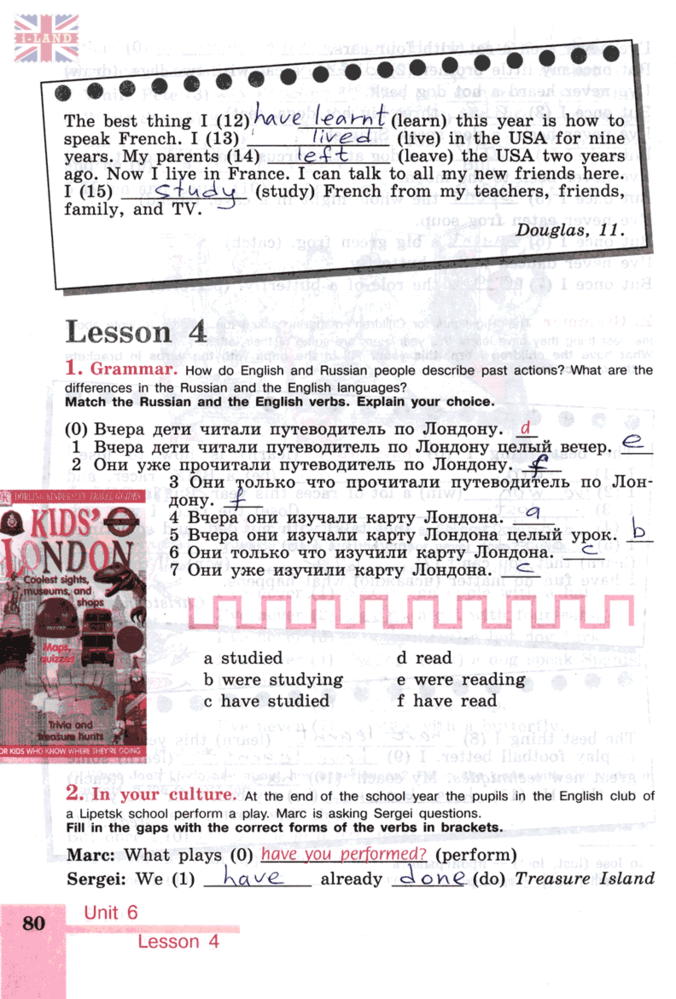 i-LAND
The best thing I (12) have learnt (learn) this year is how to
speak French. I (13) lived (live) in the USA for nine
years. My parents (14) left (leave) the USA two years
ago. Now I live in France. I can talk to all my new friends here.
I (15) study (study) French from my teachers, friends,
family, and TV.
Douglas, 11.
Lesson 4
1. Grammar. How do English and Russian people describe past actions? What are the
differences in the Russian and the English languages?
Match the Russian and the English verbs. Explain your choice.
(0) Вчера дети читали путеводитель по Лондону. d
1 Вчера дети читали путеводитель по Лондону целый вечер. e
2 Они уже прочитали путеводитель по Лондону. f
3 Они только что прочитали путеводитель по Лон-
дону. f
4 Вчера они изучали карту Лондона. a
5 Вчера они изучали карту Лондона целый урок. b
6 Они только что изучили карту Лондона. c
7 Они уже изучили карту Лондона. c
DORLING KINDERSLEY TRAVEL GUIDES
KIDS'
LONDON
Coolest sights,
museums, and
shops
Maps,
quizzes
Trivia and
treasure hunts
FOR KIDS WHO KNOW WHERE THEY'RE GOING
a studied d read
b were studying e were reading
c have studied f have read
2. In your culture. At the end of the school year the pupils in the English club of
a Lipetsk school perform a play. Marc is asking Sergei questions.
Fill in the gaps with the correct forms of the verbs in brackets.
Marc: What plays (0) have you performed? (perform)
Sergei: We (1) have already done (do) Treasure Island
80
Unit 6
Lesson 4